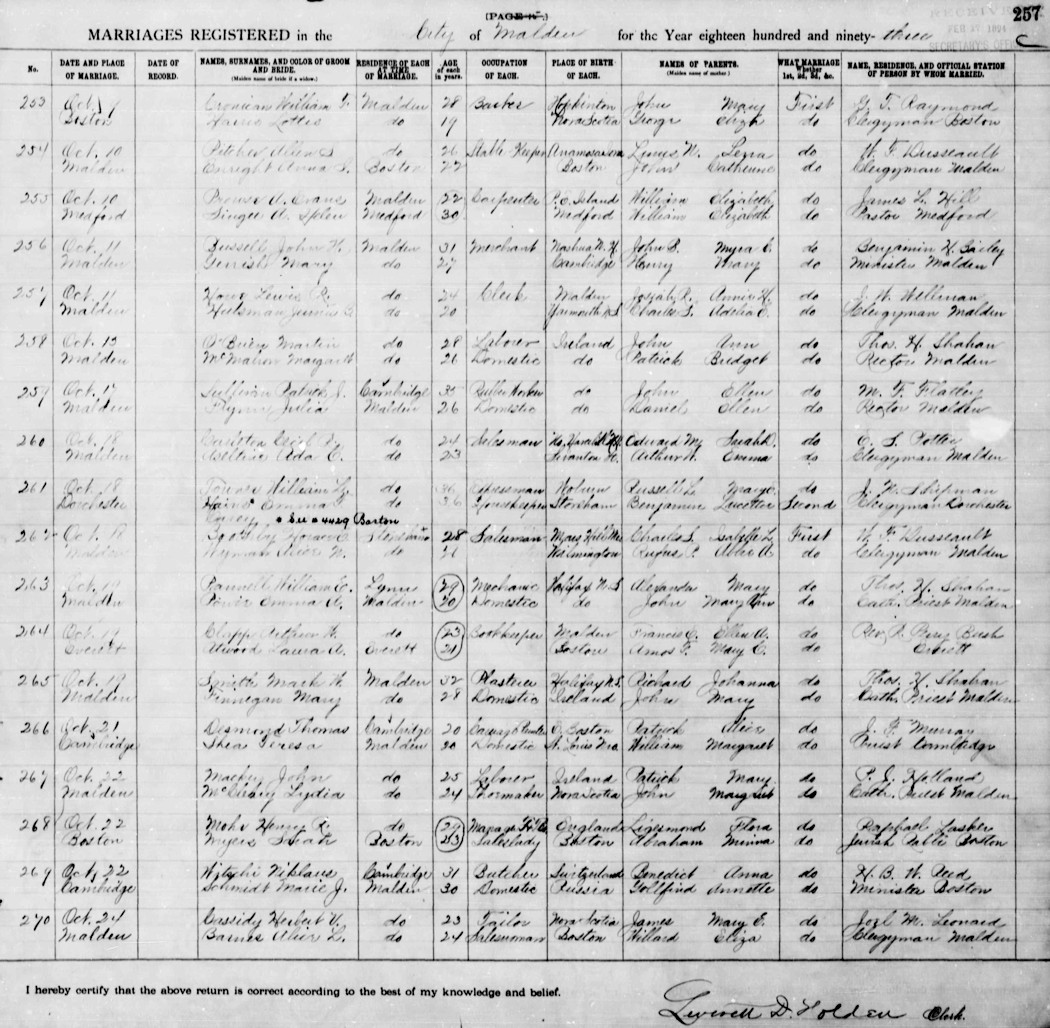 (PAGE
257
RECEIVED
FEB 27 1894
SECRETARY'S OFFICE
MARRIAGES REGISTERED in the City of Malden for the Year eighteen hundred and ninety- three
No. DATE AND PLACE OF MARRIAGE. DATE OF RECORD. NAMES, SURNAMES, AND COLOR OF GROOM AND BRIDE. (Maiden name of bride if a widow.) RESIDENCE OF EACH AT TIME OF MARRIAGE. AGE of each in years. OCCUPATION OF EACH. PLACE OF BIRTH OF EACH. NAMES OF PARENTS. (Maiden name of mother.) WHAT MARRIAGE Whether 1st, 2d, 3d, &c. NAME, RESIDENCE, AND OFFICIAL STATION OF PERSON BY WHOM MARRIED.
253 Oct. 9 William F. Malden 28 Barber Hopkinton John Mary First G. F. Raymond
Boston Lottie do 19 Nova Scotia George Eliza do Clergyman Boston
254 Oct. 10 Pitcher do 26 Stable Keeper Louis W. do W. F. Dusseault
Malden Enright Anna Boston 22 Boston John Catherine do Clergyman Malden
255 Oct. 10 Prowse A. Evans Malden 22 Carpenter P. E. Island William Elizabeth do James L. Hill
Medford Medford 30 Medford William Elizabeth do Pastor Medford
256 Oct. 11 Russell John Malden 31 Merchant Nashua N. H. John S. Myra E. do Benjamin H. Bailey
Malden Gerrish Mary do 27 Cambridge Henry Mary do Minister Malden
257 Oct. 11 Howe Lewis R. do 24 Clerk Malden Josiah R. Annie H. do J. W. Wellman
Malden do 20 Yarmouth N.S. Charles S. Adelia E. do Clergyman Malden
258 Oct. 15 O'Brien Martin do 28 Laborer Ireland John Ann do Thos. H. Shahan
Malden McMahon Margaret do 26 Domestic do Patrick Bridget do Rector Malden
259 Oct. 17 Sullivan Patrick J. Cambridge 35 Rubber Worker do John Ellen do M. F. Flatley
Malden Flynn Julia Malden 26 Domestic do Daniel Ellen do Rector Malden
260 Oct. 18 Carleton do 24 Salesman Edward M. Sarah D. do E. S. Potter
Malden Ada E. do 23 Arthur W. Emma do Clergyman Malden
261 Oct. 18 William do Expressman Woburn Russell L. Mary E. do J. W. Shipman
Dorchester Emma do 36 Housekeeper Stoneham Benjamin Second Clergyman Dorchester
See #4429 Boston
262 Oct. 18 Boothby Horace E. Stoneham 28 Salesman Charles S. Isabella L. First W. F. Dusseault
Malden Wyman Alice N. do 21 Wilmington Rufus P. Abbie A. do Clergyman Malden
263 Oct. 19 William E. Lynn 29 Mechanic Halifax N.S. Alexander Mary do Thos. H. Shahan
Malden Power Emma A. Malden 20 Domestic do John Mary Ann do Cath. Priest Malden
264 Oct. 19 Clapp Arthur H. do 23 Bookkeeper Malden Francis C. Ellen A. do Rev. R. Perry Bush
Everett Atwood Laura A. Everett 21 Boston Amos F. Mary E. do Everett
265 Oct. 19 Smith Mark H. Malden 32 Halifax N.S. Richard Johanna do Thos. H. Shahan
Malden Finnegan Mary do 28 Domestic Ireland John Mary do Cath. Priest Malden
266 Oct. 21 Desmond Thomas Cambridge 20 Carriage Painter E. Boston Patrick Alice do J. F. Murray
Cambridge Shea Teresa Malden 20 Domestic St. Louis Mo. William Margaret do Priest Cambridge
267 Oct. 22 Mackey John do 25 Laborer Ireland Patrick Mary do P. J. Holland
Malden Lydia do 24 Shoemaker Nova Scotia John Margaret do Cath. Priest Malden
268 Oct. 22 Henry R. do 29 England Flora do Raphael Lasker
Boston Myers Sarah Boston 23 Saleslady Boston Abraham Minna do Jewish Rabbi Boston
269 Oct. 22 Niklaus Cambridge 31 Butcher Switzerland Benedict Anna do H. B. W. Reed
Cambridge Schmidt Marie J. Malden 30 Domestic Russia Gottfried Annette do Minister Boston
270 Oct. 24 Cassidy Herbert V. do 23 Tailor Nova Scotia James Mary E. do Joel M. Leonard
Malden Barnes Alice L. do 24 Saleswoman Boston Willard Eliza do Clergyman Malden
I hereby certify that the above return is correct according to the best of my knowledge and belief.
Leverett D. Holden Clerk.